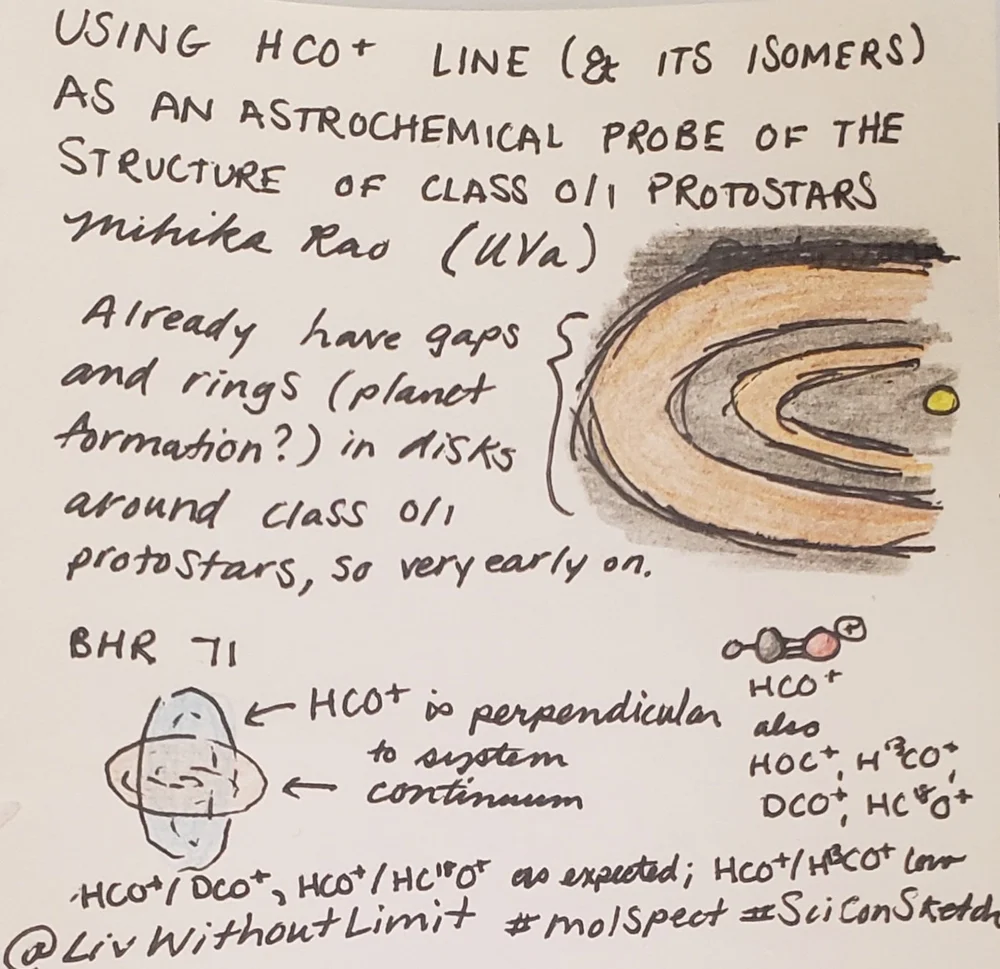 USING HCO⁺ LINE (& ITS ISOMERS)
AS AN ASTROCHEMICAL PROBE OF THE
STRUCTURE OF CLASS 0/1 PROTOSTARS
Mihika Rao (UVa)
Already have gaps
and rings (planet
formation?) in disks
around class 0/1
protostars, so very early on.
BHR 71
HCO⁺ is perpendicular
to system
continuum
+
HCO⁺
also
HOC⁺, H¹³CO⁺,
DCO⁺, HC¹⁸O⁺
HCO⁺/DCO⁺, HCO⁺/HC¹⁸O⁺ as expected; HCO⁺/H¹³CO⁺ low
@LivWithoutLimit #molSpect #SciConSketch